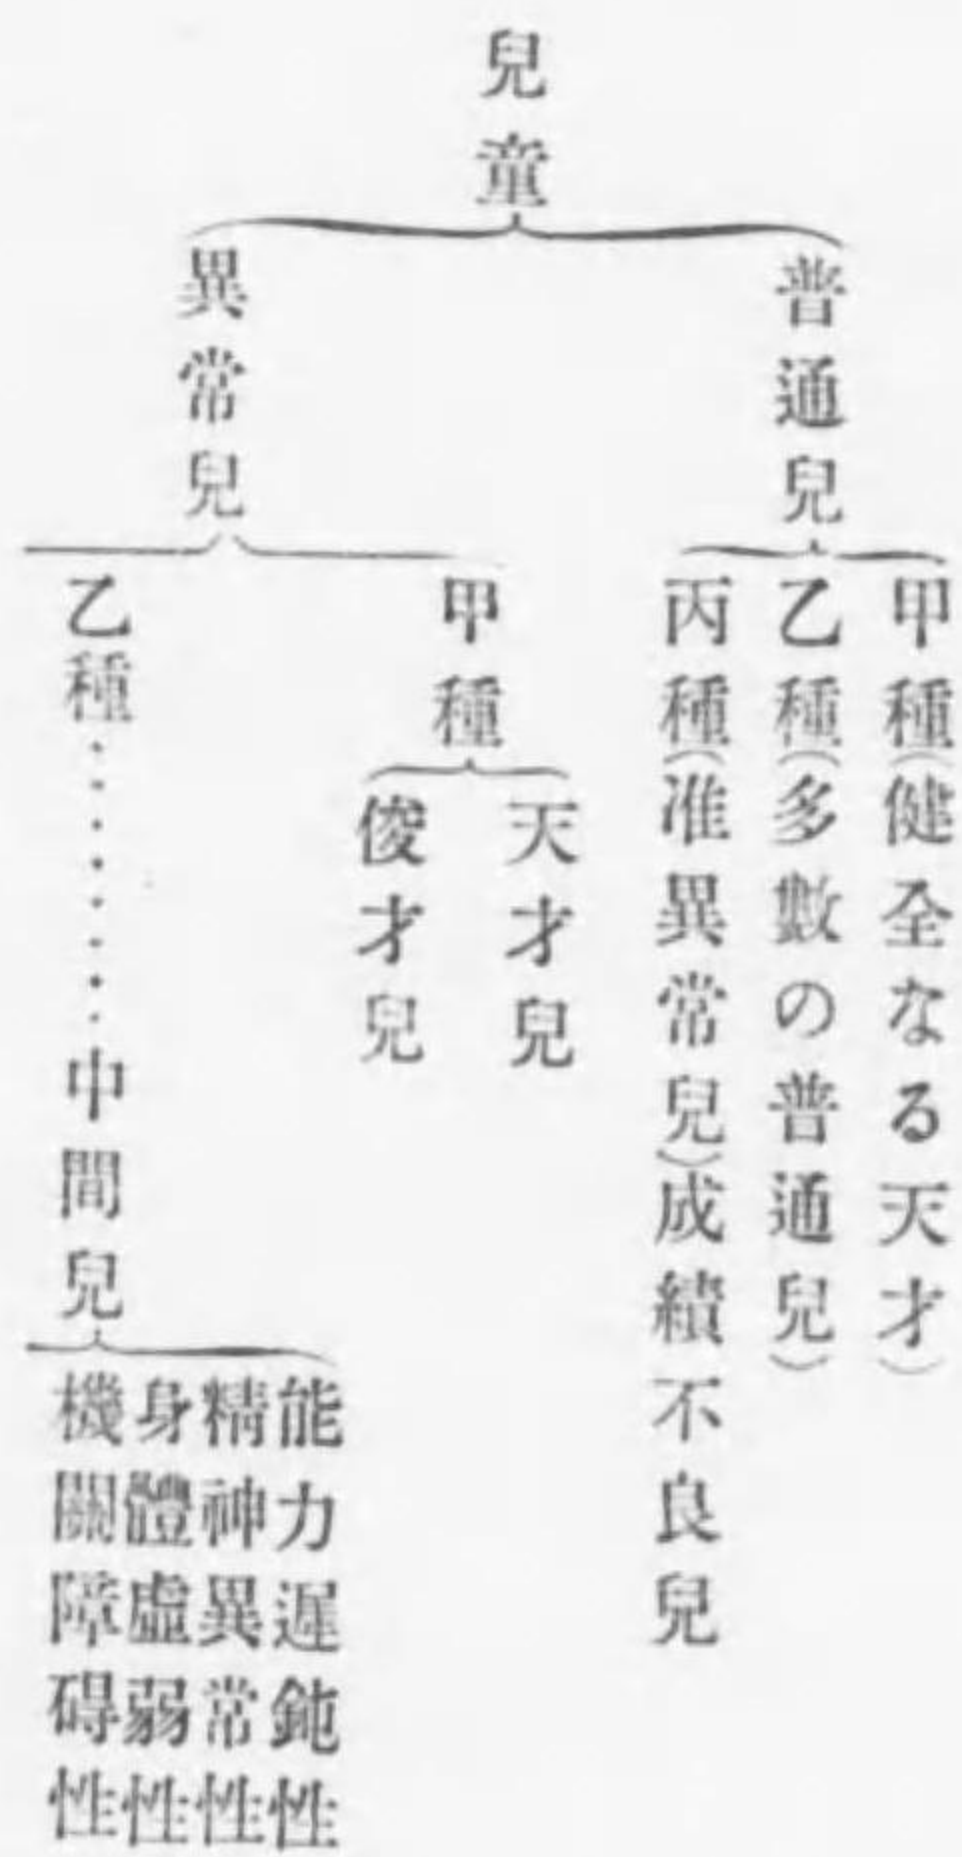 兒童
普通兒
甲種(健全なる天才)
乙種(多數の普通兒)
丙種(准異常兒)成績不良兒
異常兒
甲種
天才兒
俊才兒
乙種………中間兒
能力遲鈍性
精神異常性
身體虛弱性
機關障碍性